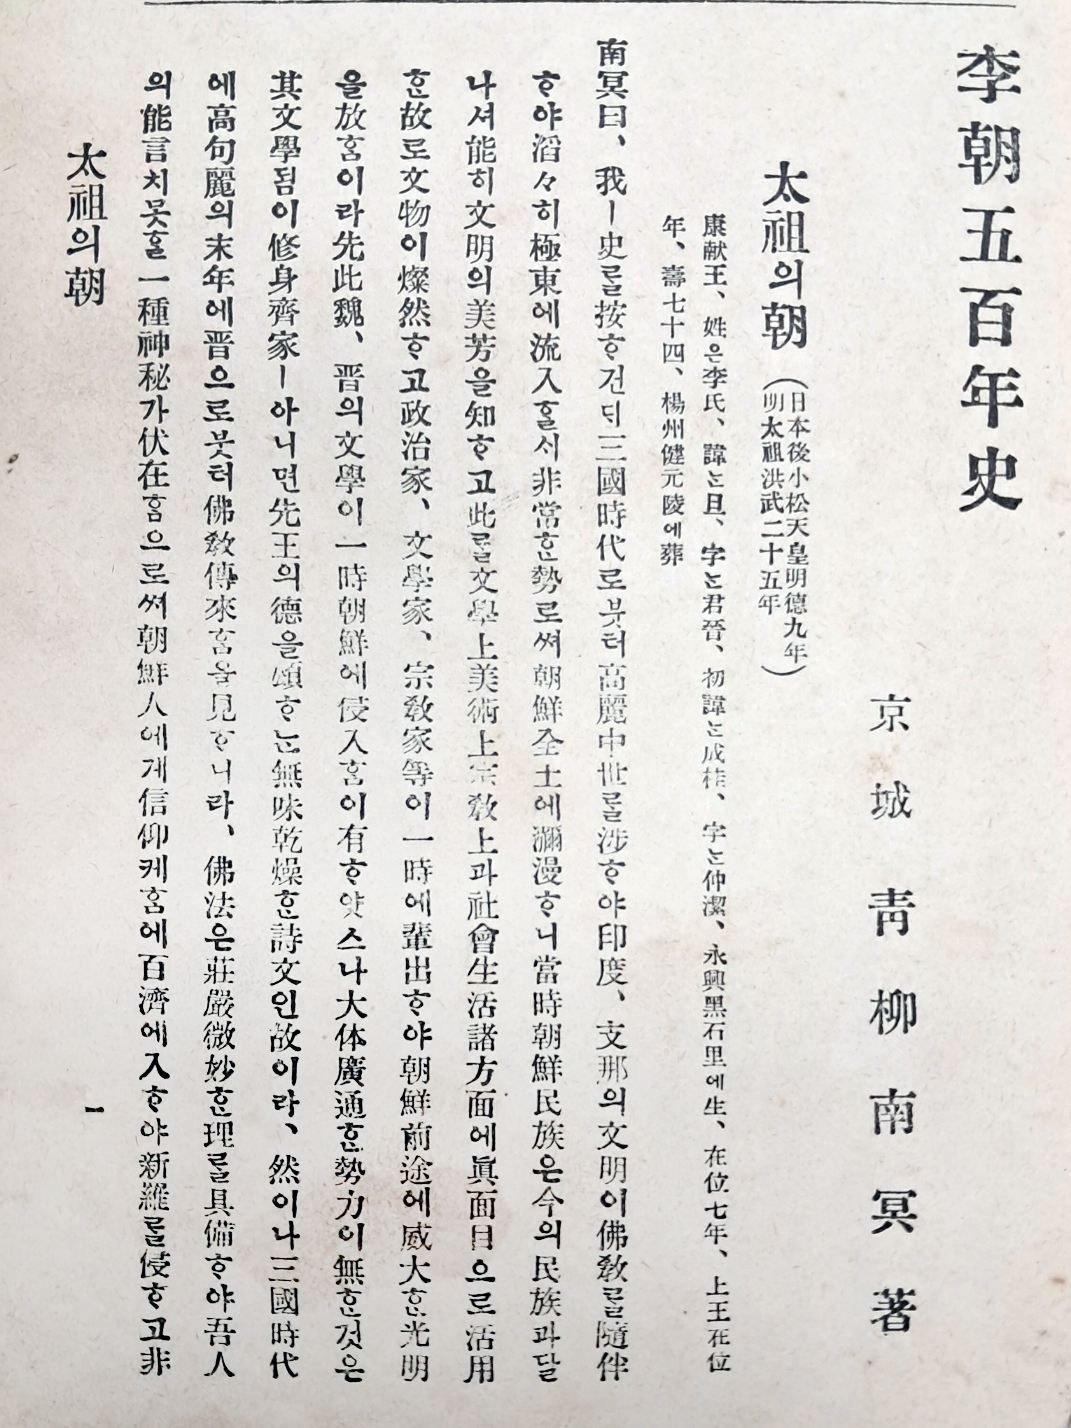 李朝五百年史
京城 靑柳南冥 著
太祖의朝
(日本後小松天皇明德九年
明太祖洪武二十五年)
康献王、姓은李氏、諱는旦、字는君晉、初諱는成桂、字는仲潔、永興黑石里에生、在位七年、上王在位
年、壽七十四、楊州健元陵에葬
南冥曰、我ㅣ史ᄅᆞᆯ按ᄒᆞ건ᄃᆡ三國時代로붓터高麗中世ᄅᆞᆯ涉ᄒᆞ야印度、支那의文明이佛敎ᄅᆞᆯ隨伴
ᄒᆞ야滔々히極東에流入ᄒᆞᆯᄉᆡ非常ᄒᆞᆫ勢로써朝鮮全土에瀰漫ᄒᆞ니當時朝鮮民族은今의民族과달
나셔能히文明의美芳을知ᄒᆞ고此ᄅᆞᆯ文學上美術上宗敎上과社會生活諸方面에眞面目으로活用
ᄒᆞᆫ故로文物이燦然ᄒᆞ고政治家、文學家、宗敎家等이一時에輩出ᄒᆞ야朝鮮前途에威大ᄒᆞᆫ光明
을放ᄒᆞᆷ이라先此魏、晋의文學이一時朝鮮에侵入ᄒᆞᆷ이有ᄒᆞ얏스나大体廣通ᄒᆞᆫ勢力이無ᄒᆞᆫ것은
其文學됨이修身齊家ㅣ아니면先王의德을頌ᄒᆞᄂᆞᆫ無味乾燥ᄒᆞᆫ詩文인故이라、然이나三國時代
에高句麗의末年에晋으로붓터佛敎傳來ᄒᆞᆷ을見ᄒᆞ니라、佛法은莊嚴微妙ᄒᆞᆫ理ᄅᆞᆯ具備ᄒᆞ야吾人
의能言치못ᄒᆞᆯ一種神秘가伏在ᄒᆞᆷ으로써朝鮮人에게信仰케ᄒᆞᆷ에百濟에入ᄒᆞ야新羅ᄅᆞᆯ侵ᄒᆞ고非
太祖의朝
一